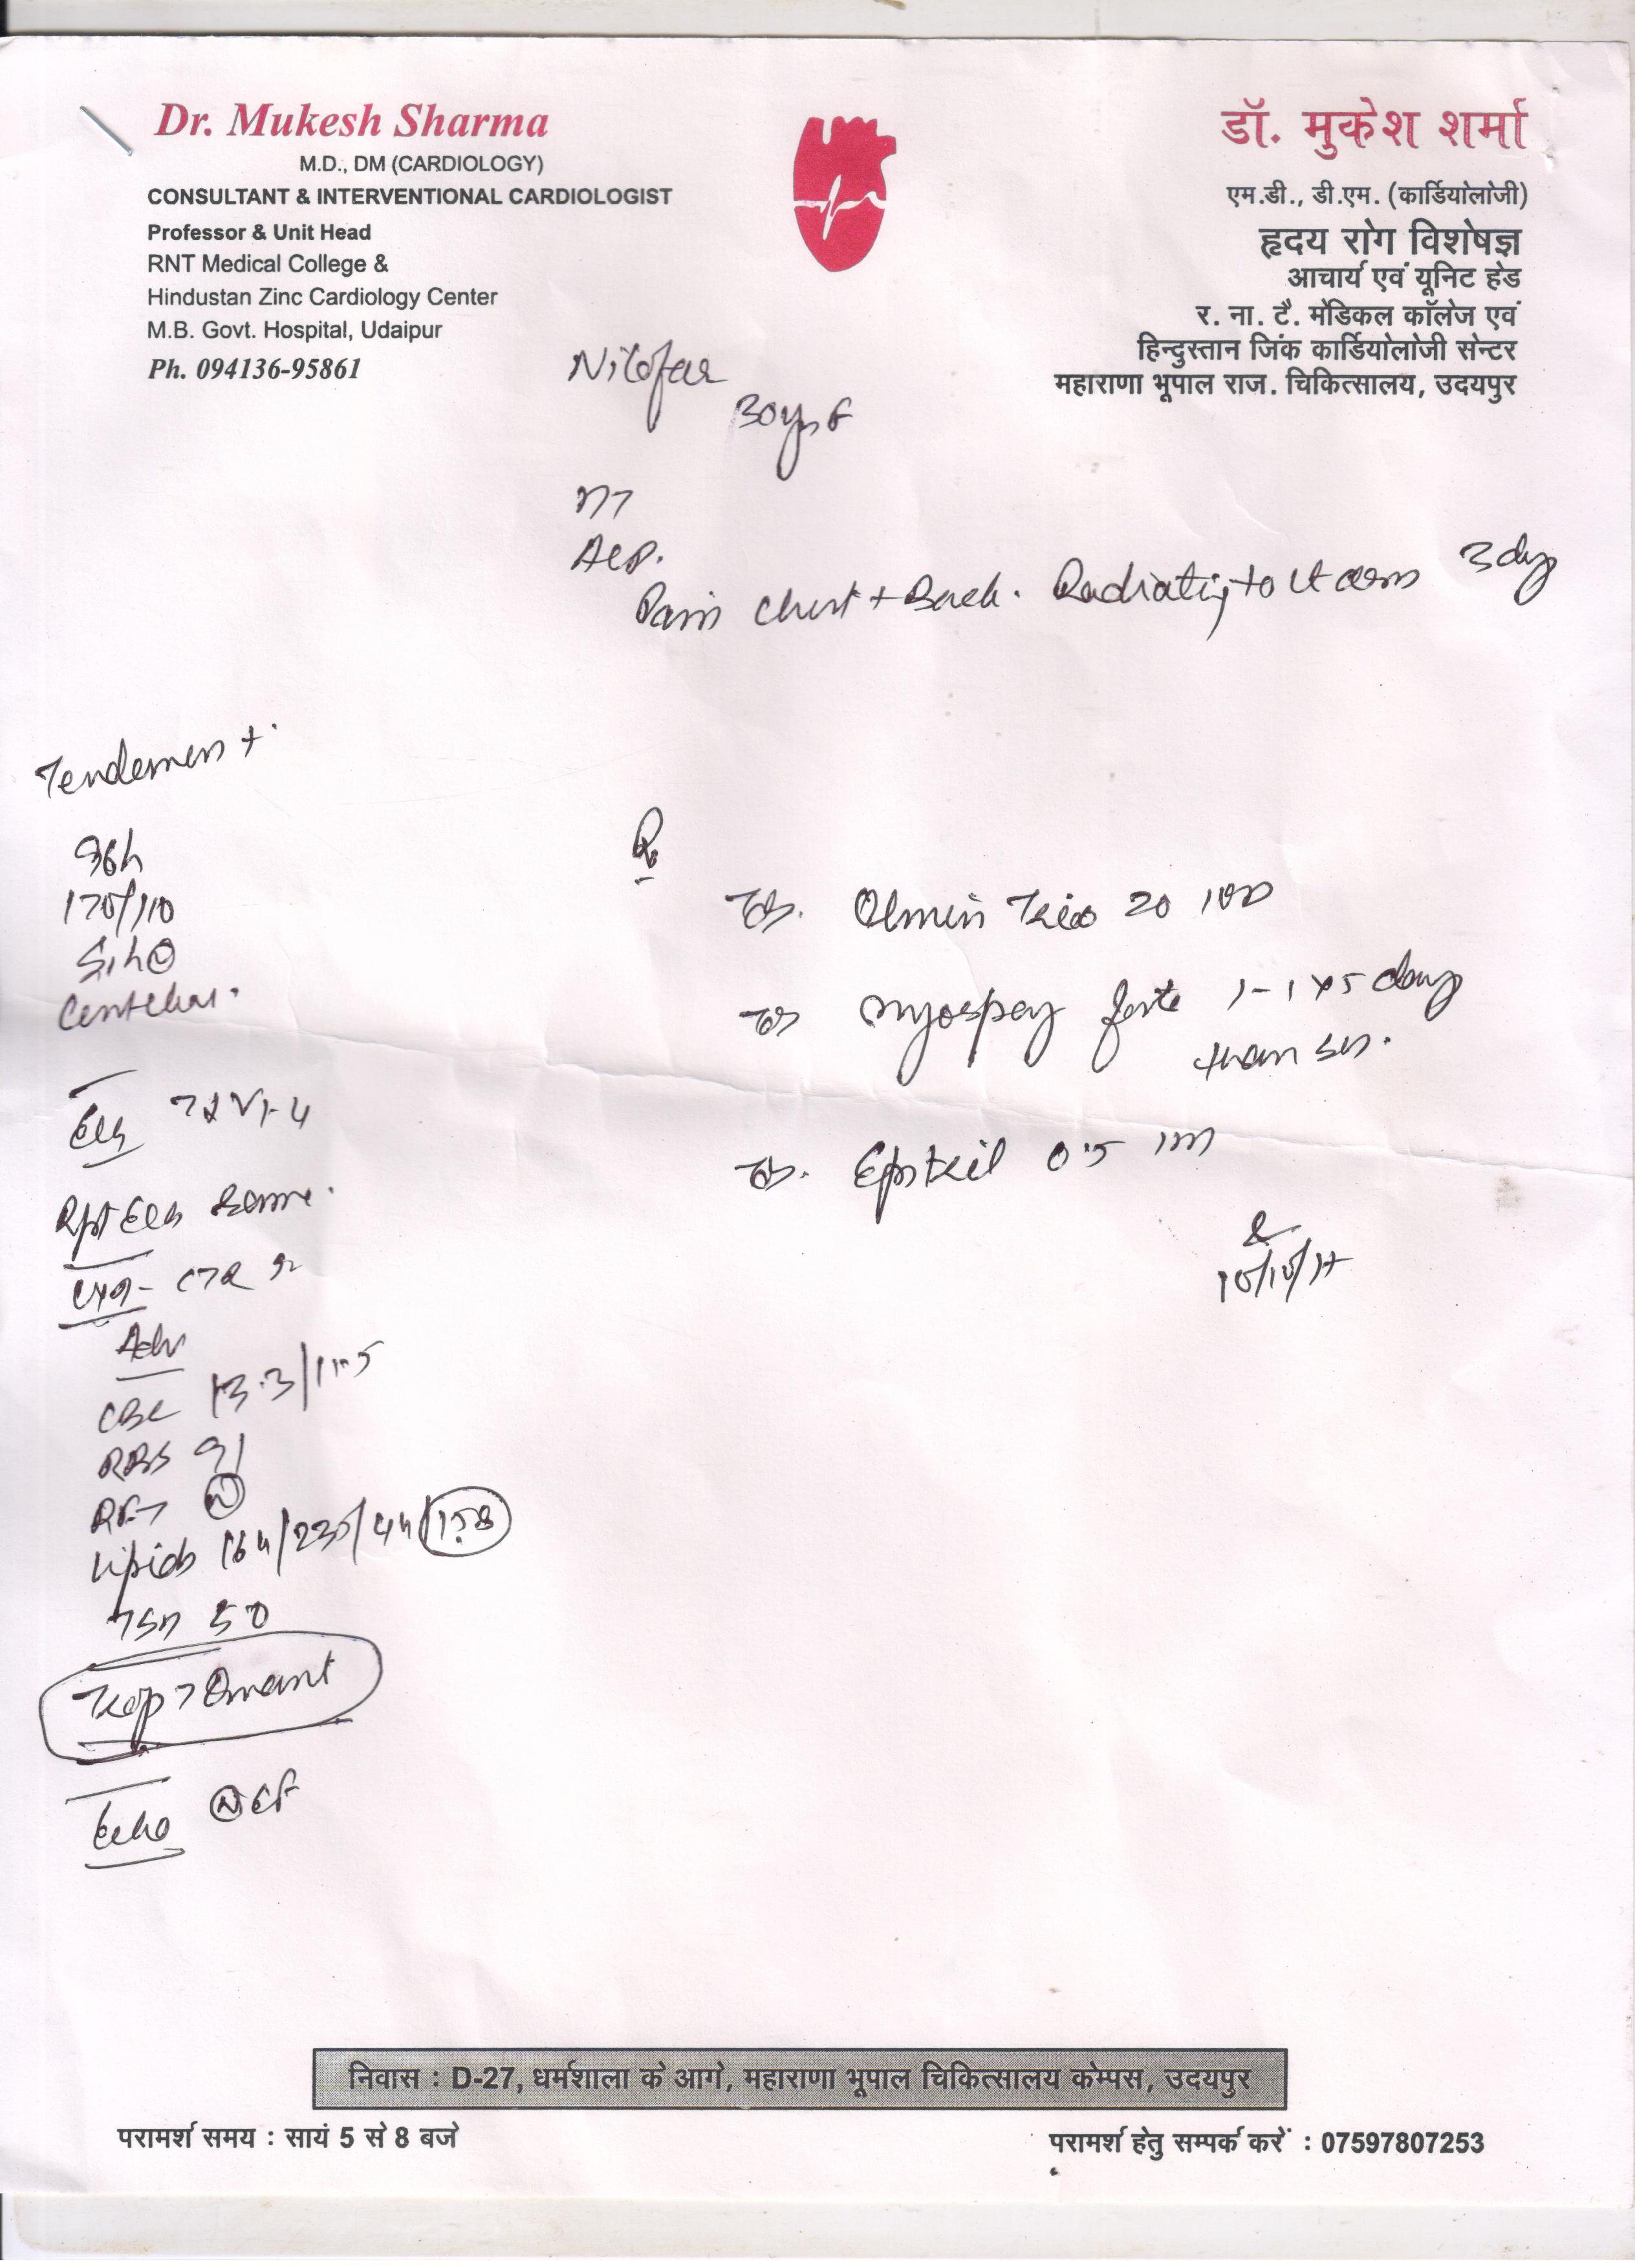 Dr. Mukesh Sharma
M.D., DM (CARDIOLOGY)
CONSULTANT & INTERVENTIONAL CARDIOLOGIST
Professor & Unit Head
RNT Medical College &
Hindustan Zinc Cardiology Center
M.B. Govt. Hospital, Udaipur
Ph. 094136-95861
डॉ. मुकेश शर्मा
एम.डी., डी.एम. (कार्डियोलोजी)
हृदय रोग विशेषज्ञ
आचार्य एवं यूनिट हेड
र. ना. टै. मेडिकल कॉलेज एवं
हिन्दुस्तान जिंक कार्डियोलोजी सेन्टर
महाराणा भूपाल राज. चिकित्सालय, उदयपुर
Nilofar
30yr F
Pain chest + Back. Radiating to Lt arm 3 day
Tenderness +
170/110
Chest clear.
ECG V1-4
Rpt ECG same.
CXR -
Adv
CBC 13.3/11.5
RBS 91
RFT N
Lipids 164/235/44/158
TSH 5.0
Trop T Quant
Echo N EF
Rx
Tab. Olmin Trio 20 1 OD
Tab Myospaz forte 1-1 x 5 day
than SOS.
Tab. Eptril 0.5
10/10/17
निवास : D-27, धर्मशाला के आगे, महाराणा भूपाल चिकित्सालय केम्पस, उदयपुर
परामर्श समय : सायं 5 से 8 बजे
परामर्श हेतु सम्पर्क करें : 07597807253